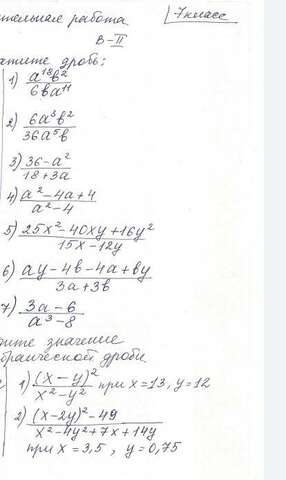 тельная работа
7 класс
В-II
атите дробь:
1) a¹⁸b² / 6ba¹¹
2) 6a³b² / 36a⁵b
3) 36-a² / 18+3a
4) a²-4a+4 / a²-4
5) 25x²-40xy+16y² / 15x-12y
6) ay-4b-4a+by / 3a+3b
7) 3a-6 / a³-8
ите значение
браической дроби
1) (x-y)² / x²-y² при x=13, y=12
2) (x-2y)²-49 / x²-4y²+7x+14y
при x=3,5, y=0,75